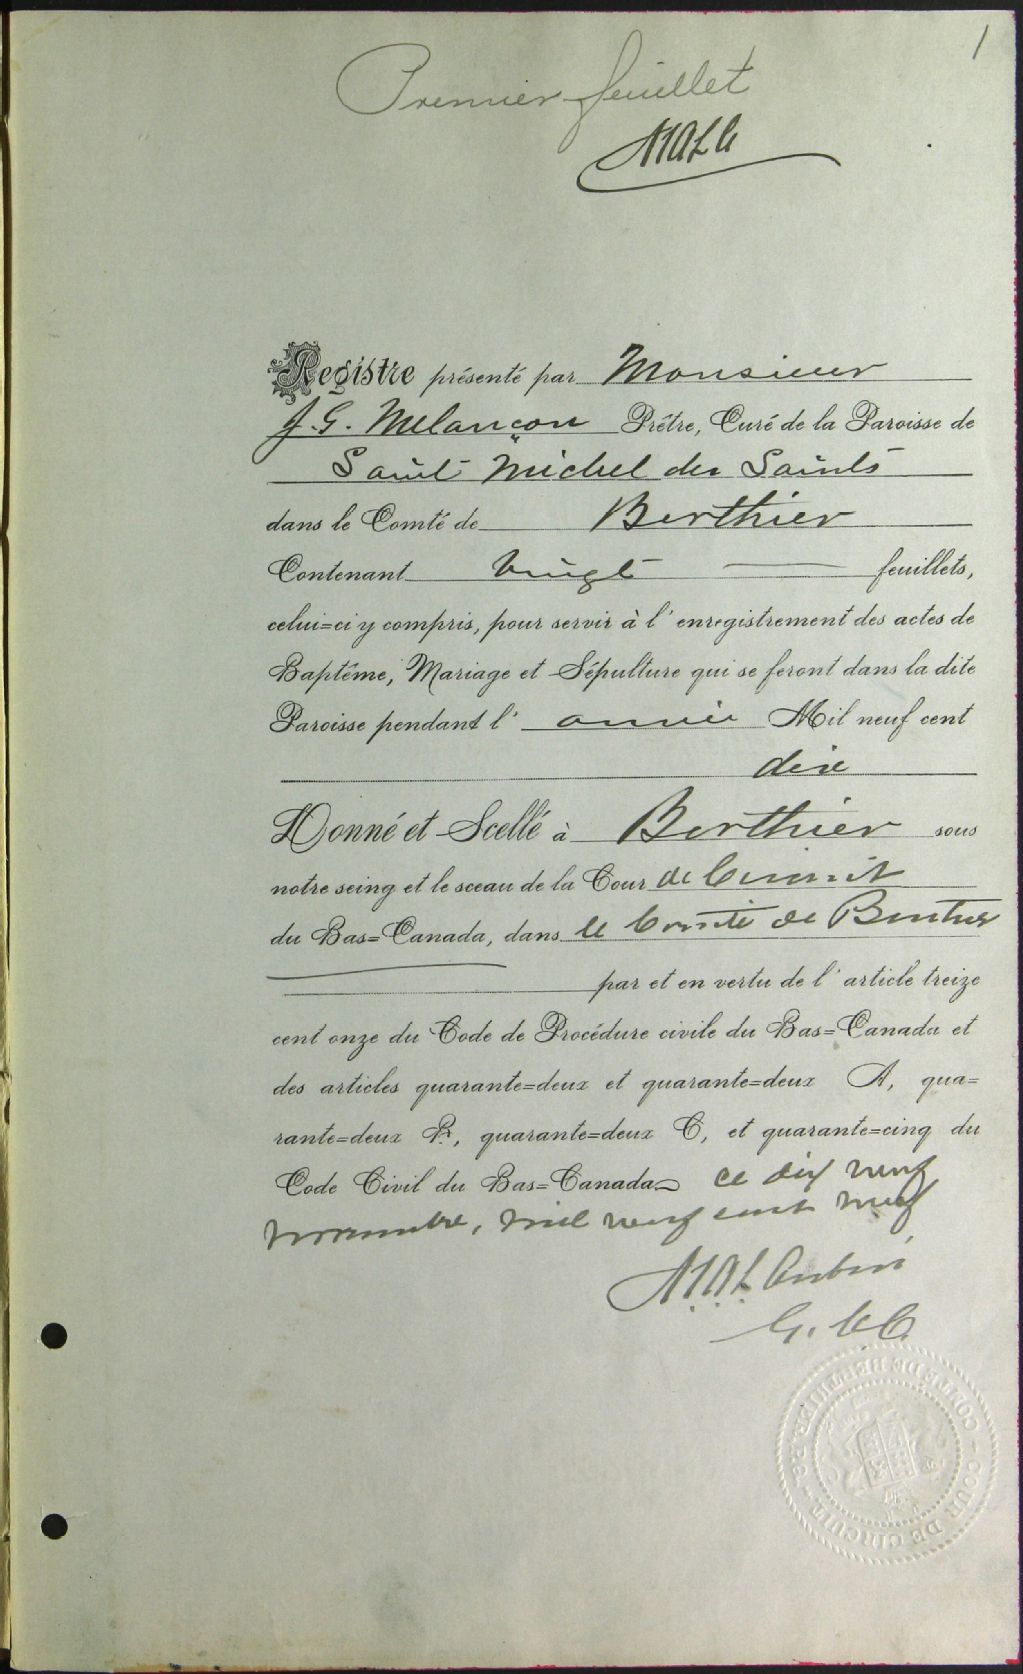 1
Premier feuillet
Registre présenté par Monsieur
J. G. Melançon Prêtre, Curé de la Paroisse de
Saint Michel des Saints
dans le Comté de Berthier
Contenant vingt feuillets,
celui=ci y compris, pour servir à l'enregistrement des actes de
Baptême, Mariage et Sépulture qui se feront dans la dite
Paroisse pendant l'année Mil neuf cent
dix
Donné et Scellé à Berthier sous
notre seing et le sceau de la Cour de Circuit
du Bas=Canada, dans le Comté de Berthier
par et en vertu de l'article treize
cent onze du Code de Procédure civile du Bas=Canada et
des articles quarante=deux et quarante=deux A, qua=
rante=deux B, quarante=deux C, et quarante=cinq du
Code Civil du Bas=Canada ce dix neuf
novembre, mil neuf cent neuf
COUR DE CIRCUIT COMTÉ DE BERTHIER